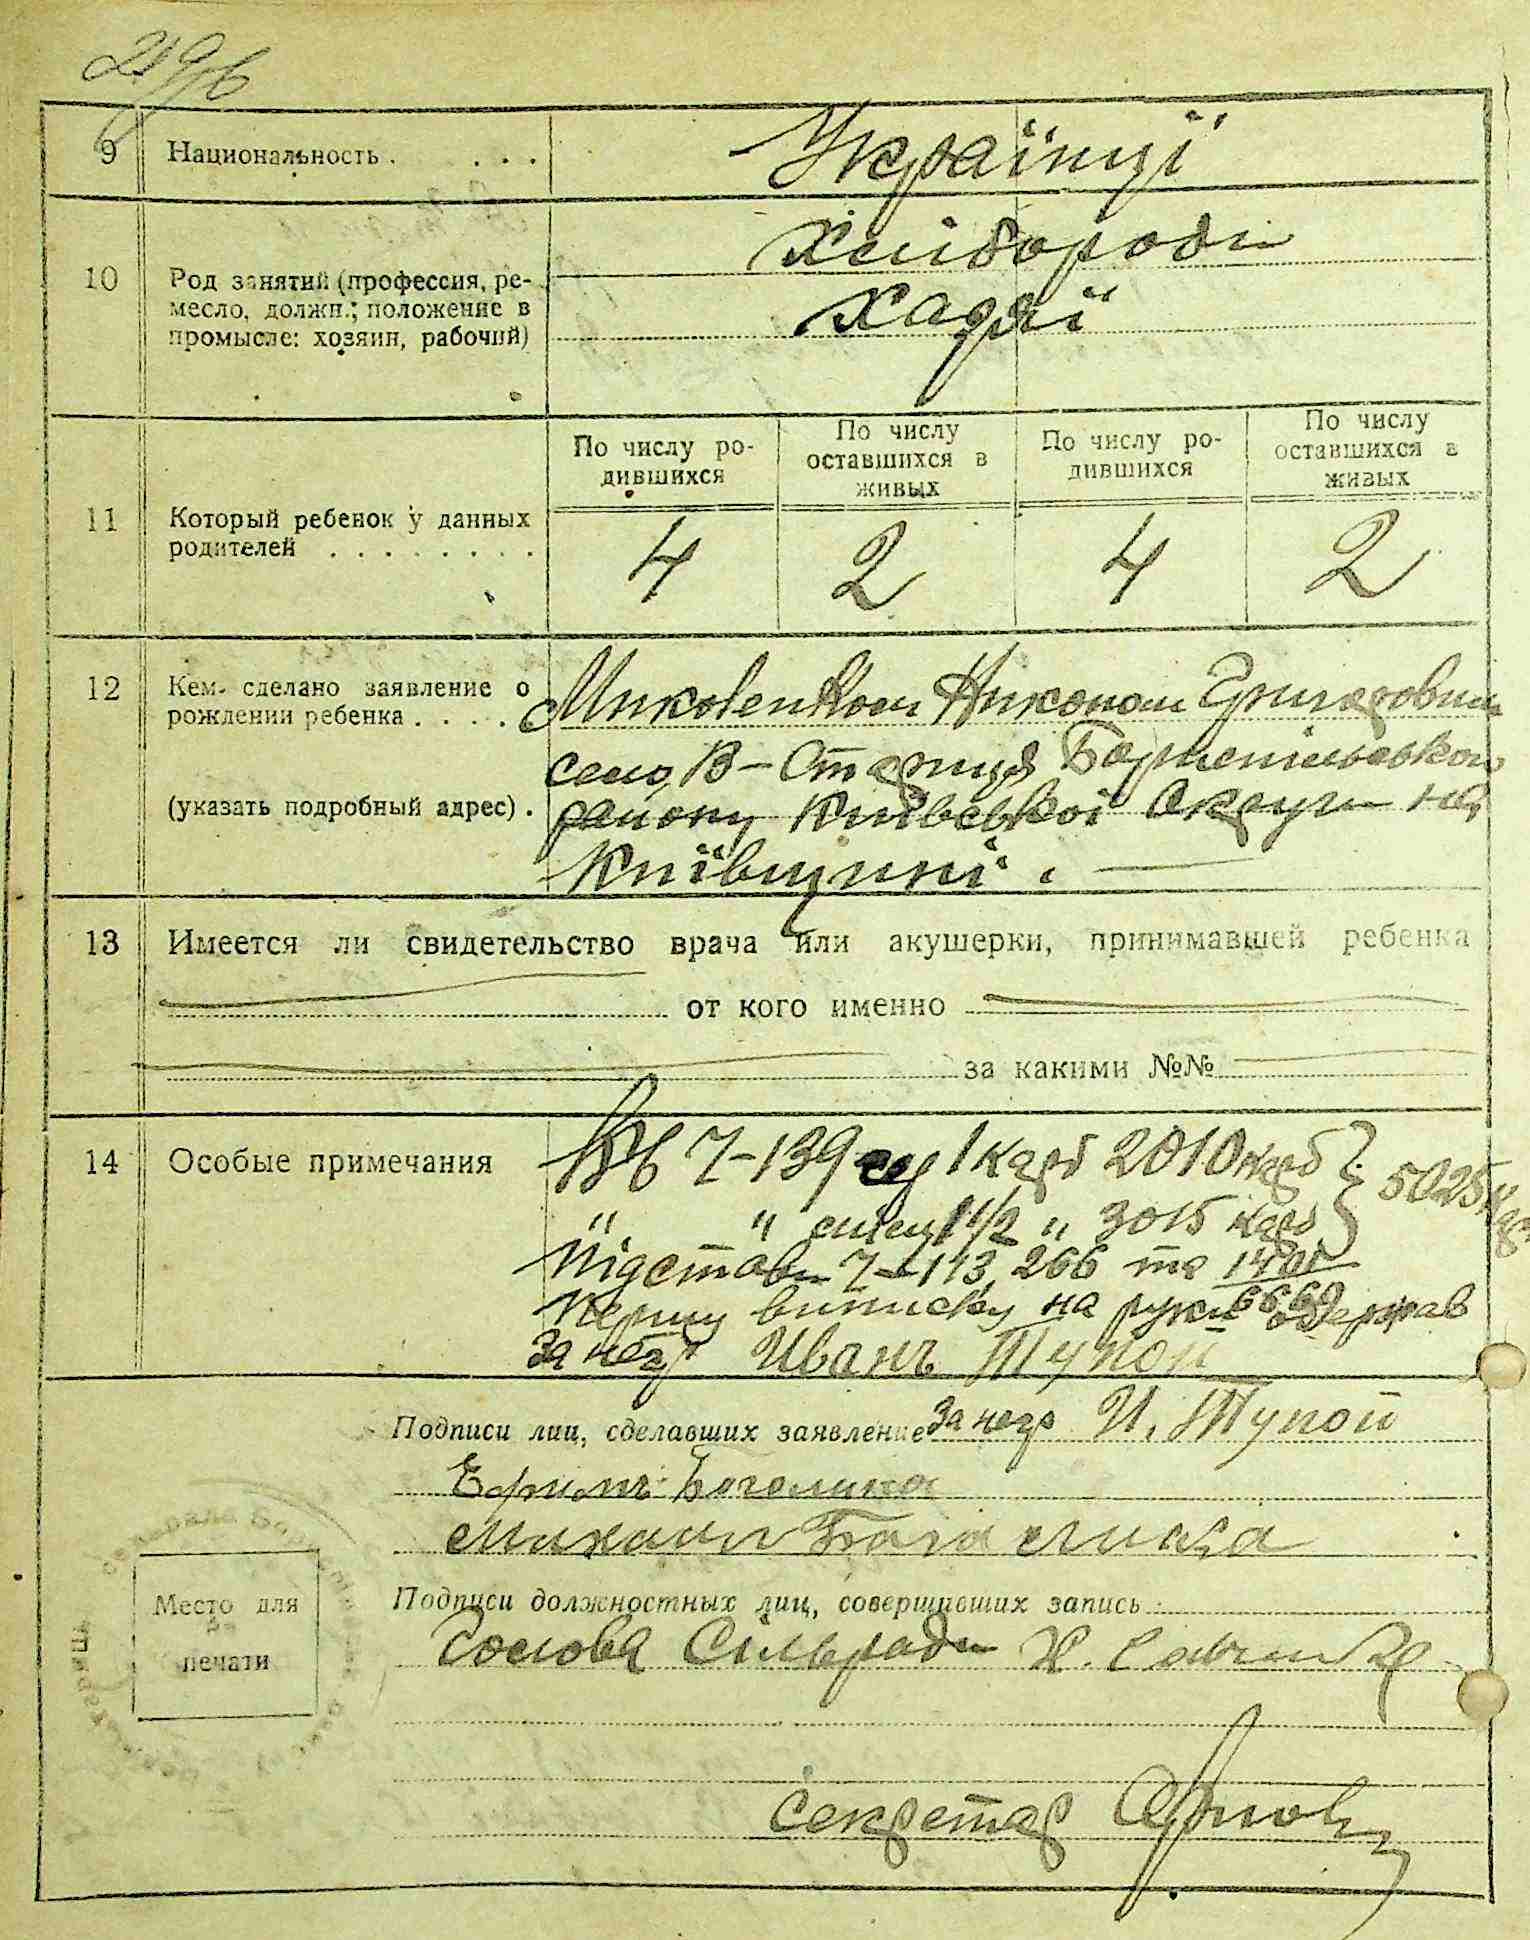 9 Национальность . . . . Українці
10 Род занятий (профессия, ре-
месло, должн.; положение в
промысле: хозяин, рабочий)
Хлібороби
Хазяї
11 Который ребенок у данных
родителей . . . . . . . .
По числу ро-
дившихся
По числу
оставшихся в
живых
По числу ро-
дившихся
По числу
оставшихся в
живых
4 2 4 2
12 Кем сделано заявление о
рождении ребенка . . . .
(указать подробный адрес) .
Миколенком Никоном Григоровим
село В-Стариця Бориспільського
району Київської Округи на
Київщині.
13 Имеется ли свидетельство врача или акушерки, принимавшей ребенка
от кого именно
за какими №№
14 Особые примечания
Кв 7-139 1 карб 2010 карб } 5025
" " 1 1/2 " 3015 карб
Підстава 7-113, 266 та
Першу виписку на руки одержав
За негр Иванъ Тупой
Подписи лиц, сделавших заявление За негр И. Тупой
Ефимъ Боголика
Михаил
Подписи должностных лиц, совершивших запись
Голова Сільради
Место для
печати
секретар